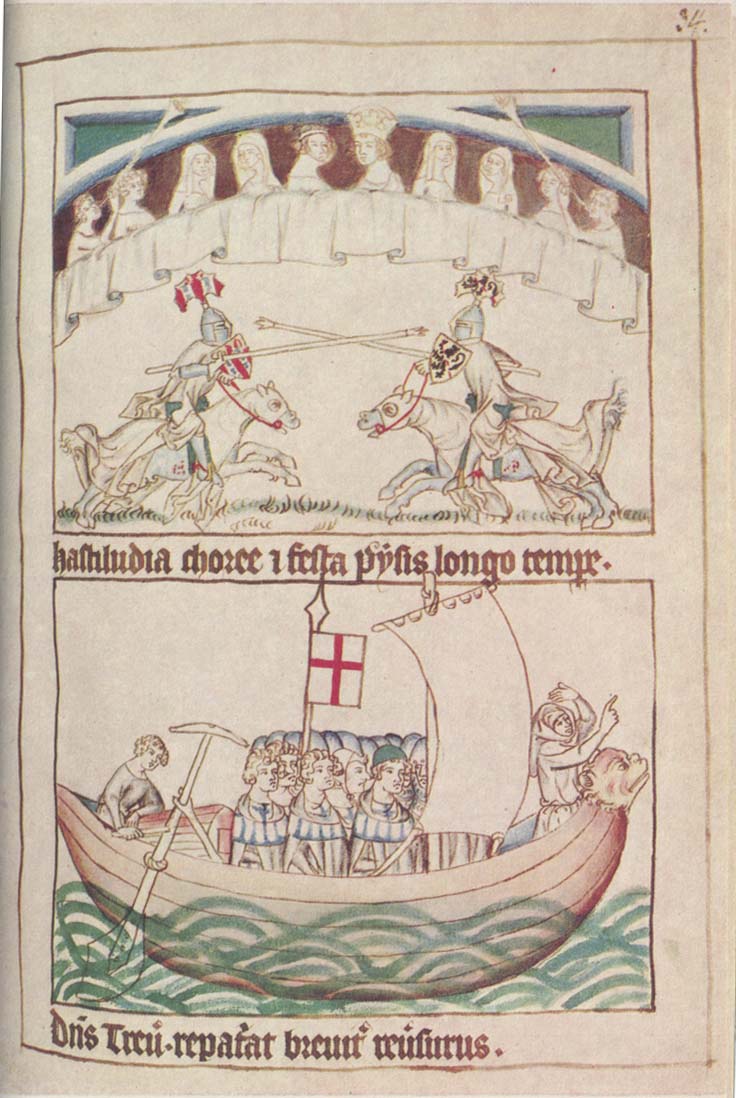 34.
hastiludia choree ⁊ festa pÿsis longo tempe.
Dn̄s Treū. repat̄at breuit̾ reūsurus.